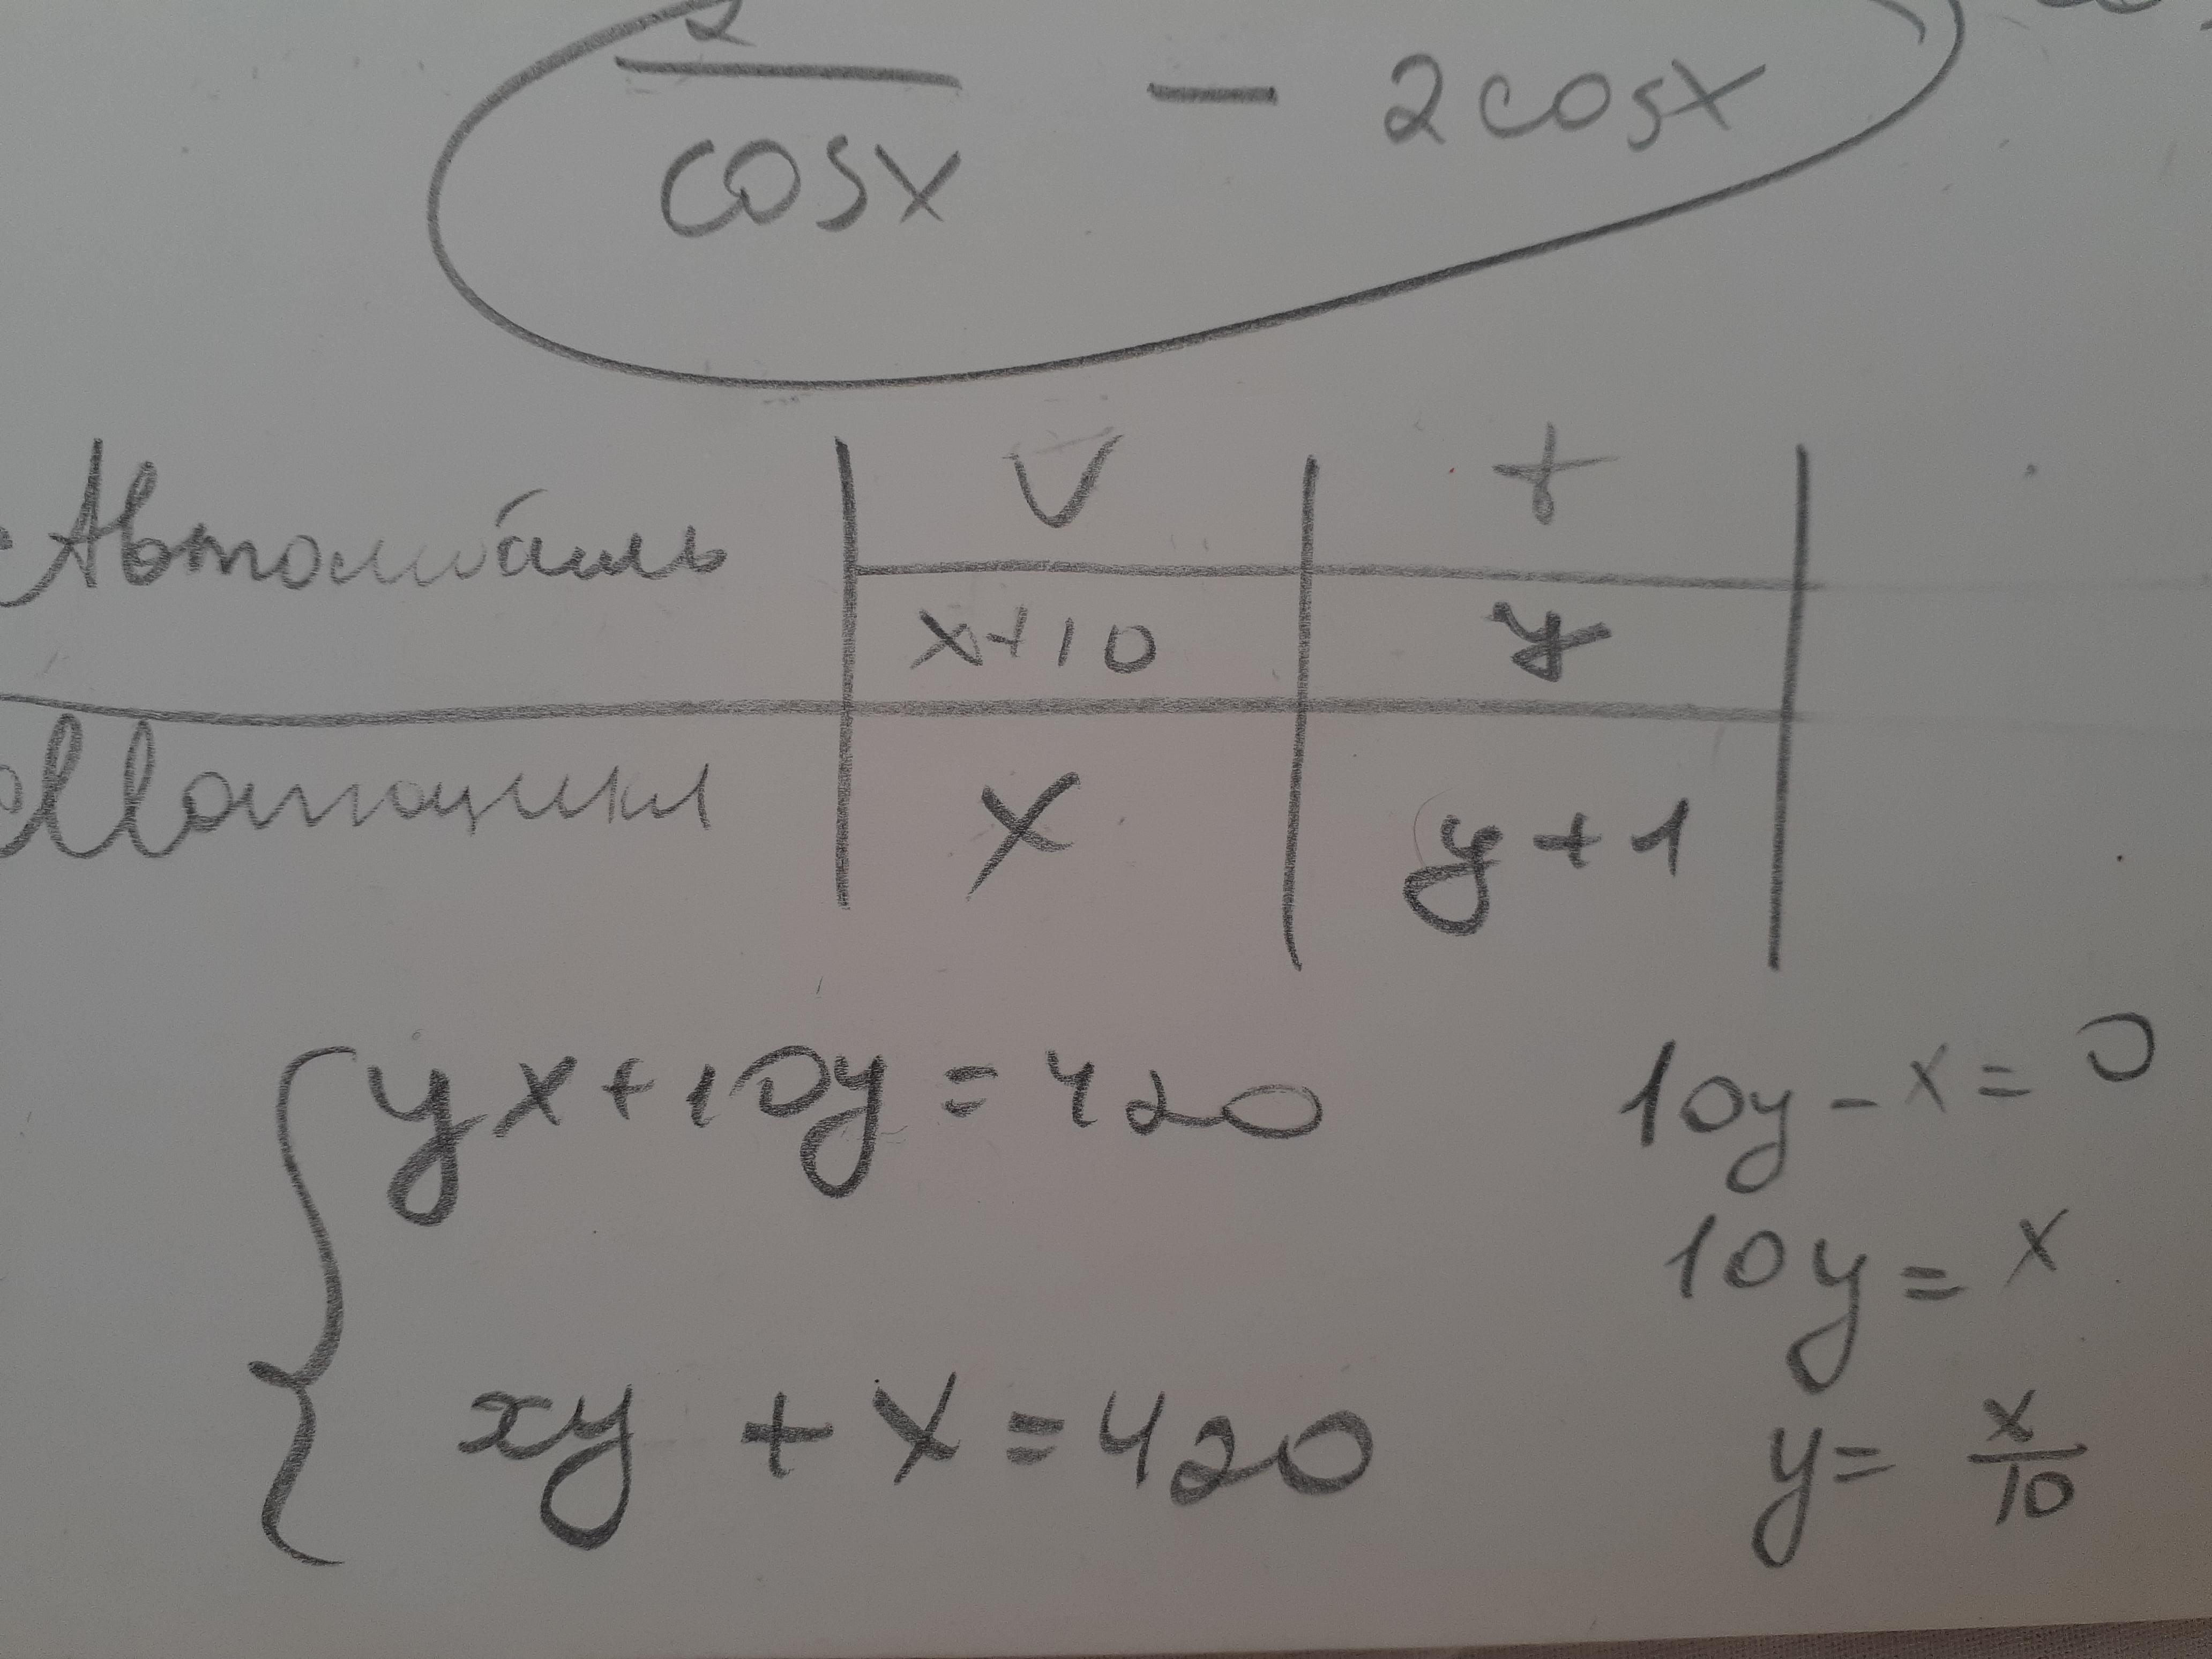 2/cosx - 2cosx
V t
Автомобиль x+10 y
Мотоцикл x y+1
yx+10y=420 10y-x=0
10y=x
xy+x=420 y=x/10